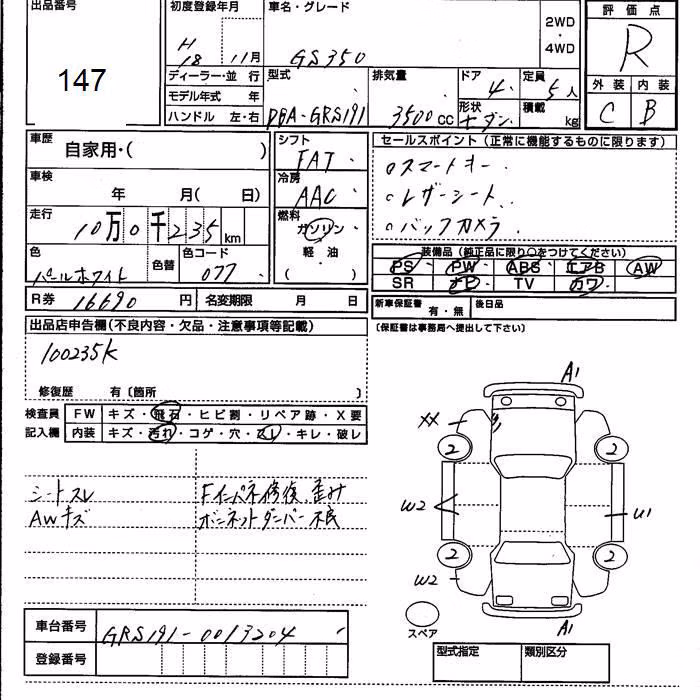 出品番号
147
初度登録年月
H18 11月
車名・グレード
GS350
2WD
・
4WD
評価点
R
外装 内装
C B
ディーラー・並行
モデル年式 年
ハンドル 左・右
型式
DBA-GRS191
排気量
3500cc
ドア
4
形状
セダン
定員
5人
積載
kg
車歴
自家用・( )
車検
年 月( 日)
走行
10万0千235km
色
パールホワイト
色替
色コード
077
シフト
FAT
冷房
AAC
燃料
ガソリン
軽油
( ・ )
セールスポイント (正常に機能するものに限ります)
○スマートキー
○レザーシート
○バックカメラ
装備品 (純正品に限り○をつけてください)
PS PW ABS エアB AW
SR ナビ TV カワ
R券 16690円
名変期限 月 日
新車保証書 有・無
後日品
(保証書は事務局へ提出して下さい)
出品店申告欄(不良内容・欠品・注意事項等記載)
100235K
修復歴 有〔箇所 〕
検査員
記入欄
FW キズ・飛石・ヒビ割・リペア跡・X要
内装 キズ・汚れ・コゲ・穴・スレ・キレ・破レ
シートスレ
AWキズ
Fインパネ修復、歪み
ボンネットダンパー不良
A1
XX
2
2
W2
U1
2
2
W2
A1
スペア
車台番号 GRS191-0013204
登録番号
型式指定
類別区分